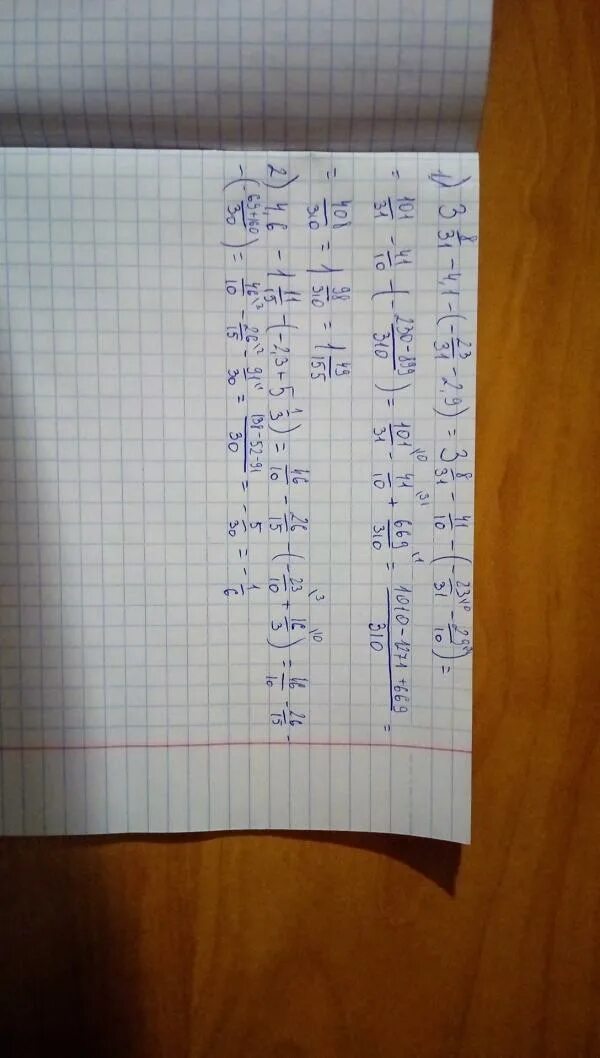 1) 3 8/31 - 4,1 - (- 23/31 - 2,9) = 3 8/31 - 41/10 - (- 23\10/31 - 29/10) =
= 101/31 - 41/10 - (- 230-899/310) = 101\10/31 - 41\31/10 + 669\1/310 = 1010-1271+669/310 =
= 408/310 = 1 98/310 = 1 49/155
2) 4,6 - 1 11/15 - (-2,3 + 5 1/3) = 46/10 - 26/15 - (- 23\3/10 + 16\10/3) = 46/10 - 26/15 -
- (-69+160/30) = 46\3/10 - 26\2/15 - 91\1/30 = 138-52-91/30 = - 5/30 = - 1/6